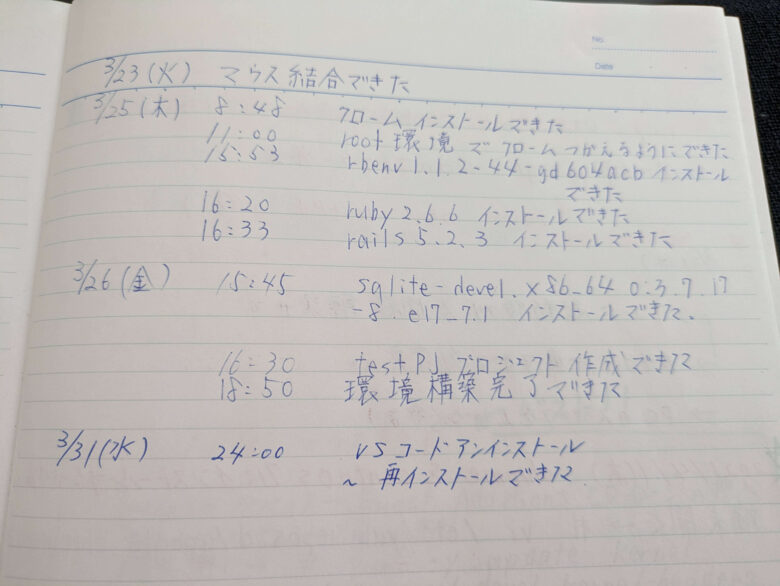 No.
Date
3/23(火) マウス結合できた
3/25(木) 8:48 クロームインストールできた
11:00 root環境でクロームつかえるようにできた
15:53 rbenv 1.1.2-44-gd604acb インストール
できた
16:20 ruby 2.6.6 インストールできた
16:33 rails 5.2.3 インストールできた
3/26(金) 15:45 sqlite-devel.x86_64 0:3.7.17
-8.el7_7.1 インストールできた.
16:30 test_PJ プロジェクト作成できた
18:50 環境構築完了できた
3/31(水) 24:00 VSコードアンインストール
~ 再インストールできた